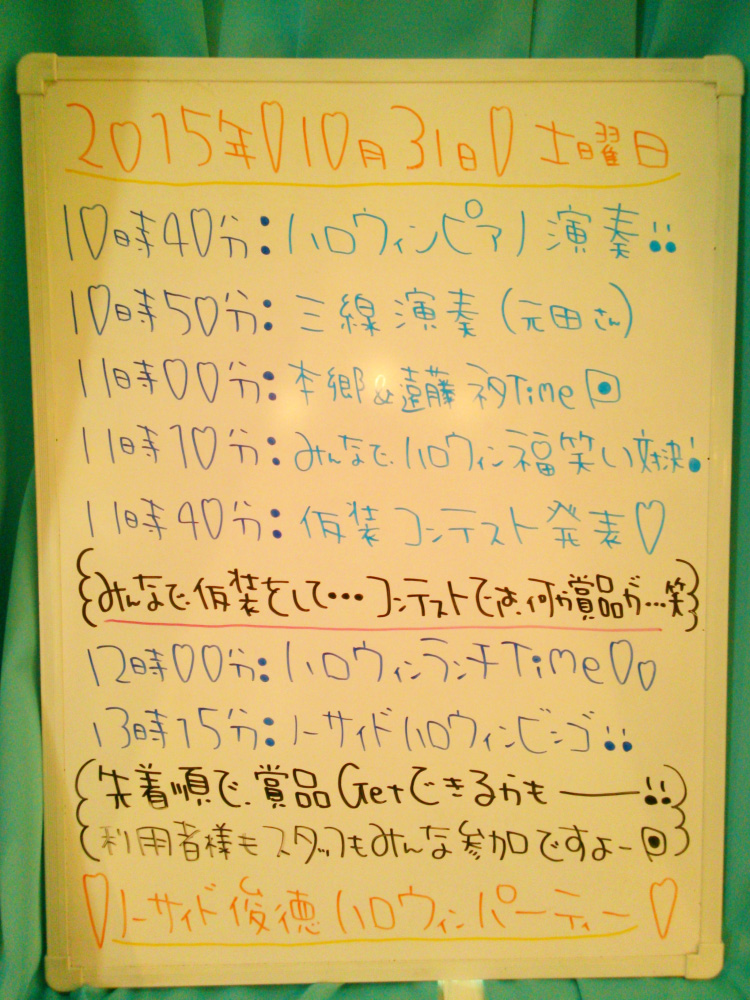 2015年♡10月31日♡土曜日
10時40分:ハロウィンピアノ演奏!!
10時50分:三線演奏(元田さん)
11時00分:本郷&遠藤ネタTime
11時10分:みんなで、ハロウィン福笑い対決!
11時40分:仮装コンテスト発表♡
(みんなで、仮装をして…コンテストでは、何か賞品が…笑)
12時00分:ハロウィンランチTime♡♡
13時15分:ノーサイドハロウィンビンゴ!!
(先着順で、賞品Getできるかも――!!
利用者様もスタッフもみんな参加ですよー)
♡ノーサイド俊徳ハロウィンパーティー♡